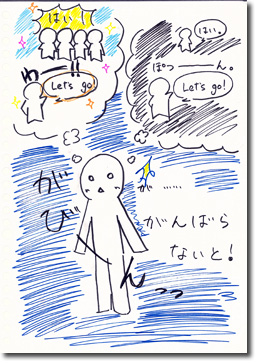 はい!
わーー!!
Let's go!
はい。
ぽつーーーん。
Let's go!
が……
がびーーん
がんばら
ないと!